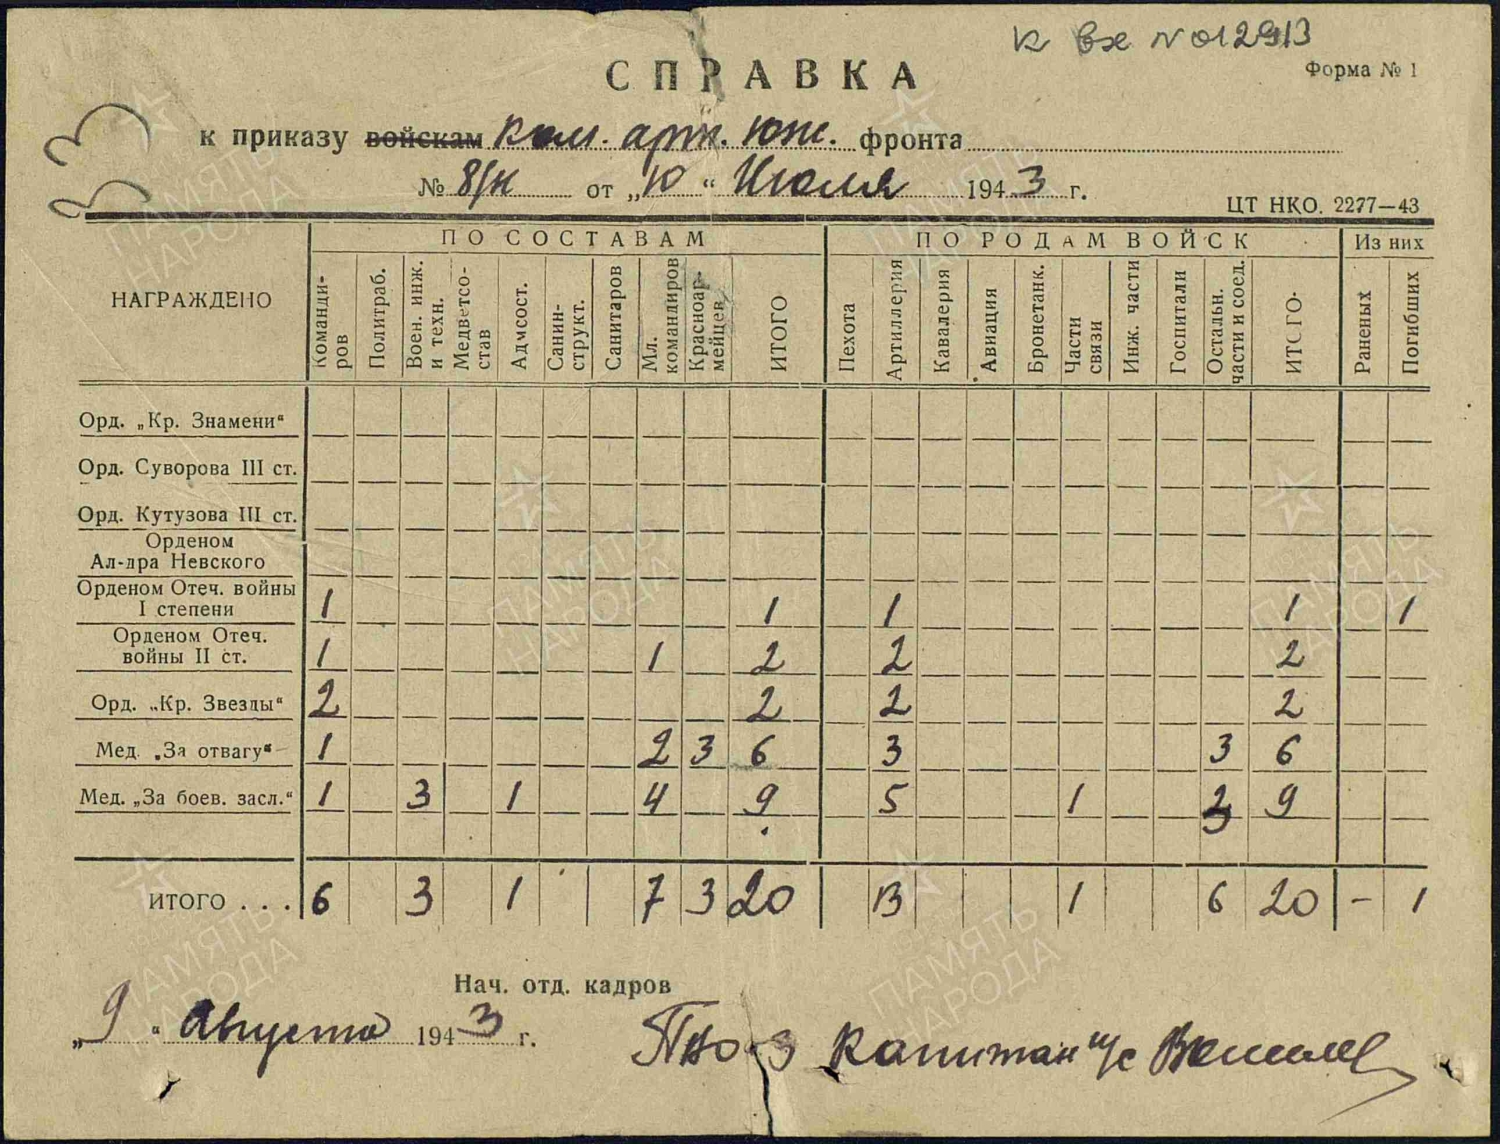 к вх № 012913
СПРАВКА
Форма № 1
33
к приказу войскам Ком. арт. Юж. фронта
№ 8/н от „10“ Июля 1943 г.
ЦТ НКО. 2277—43
НАГРАЖДЕНО ПО СОСТАВАМ ПО РОДАМ ВОЙСК Из них
Командиров Политраб. Воен. инж. и техн. Медветсостав Адмсост. Санинструкт. Санитаров Мл. командиров Красноармейцев ИТОГО Пехота Артиллерия Кавалерия Авиация Бронетанк. Части связи Инж. части Госпитали Остальн. части и соед. ИТОГО Раненых Погибших
Орд. „Кр. Знамени“
Орд. Суворова III ст.
Орд. Кутузова III ст.
Орденом
Ал-дра Невского
Орденом Отеч. войны
I степени 1 1 1 1 1
Орденом Отеч.
войны II ст. 1 1 2 2 2
Орд. „Кр. Звезды“ 2 2 2 2
Мед. „За отвагу“ 1 2 3 6 3 3 6
Мед. „За боев. засл.“ 1 3 1 4 9 5 1 3 9
ИТОГО . . . 6 3 1 7 3 20 13 1 6 20 – 1
Нач. отд. кадров
„9“ Августа 1943 г.
Капитан